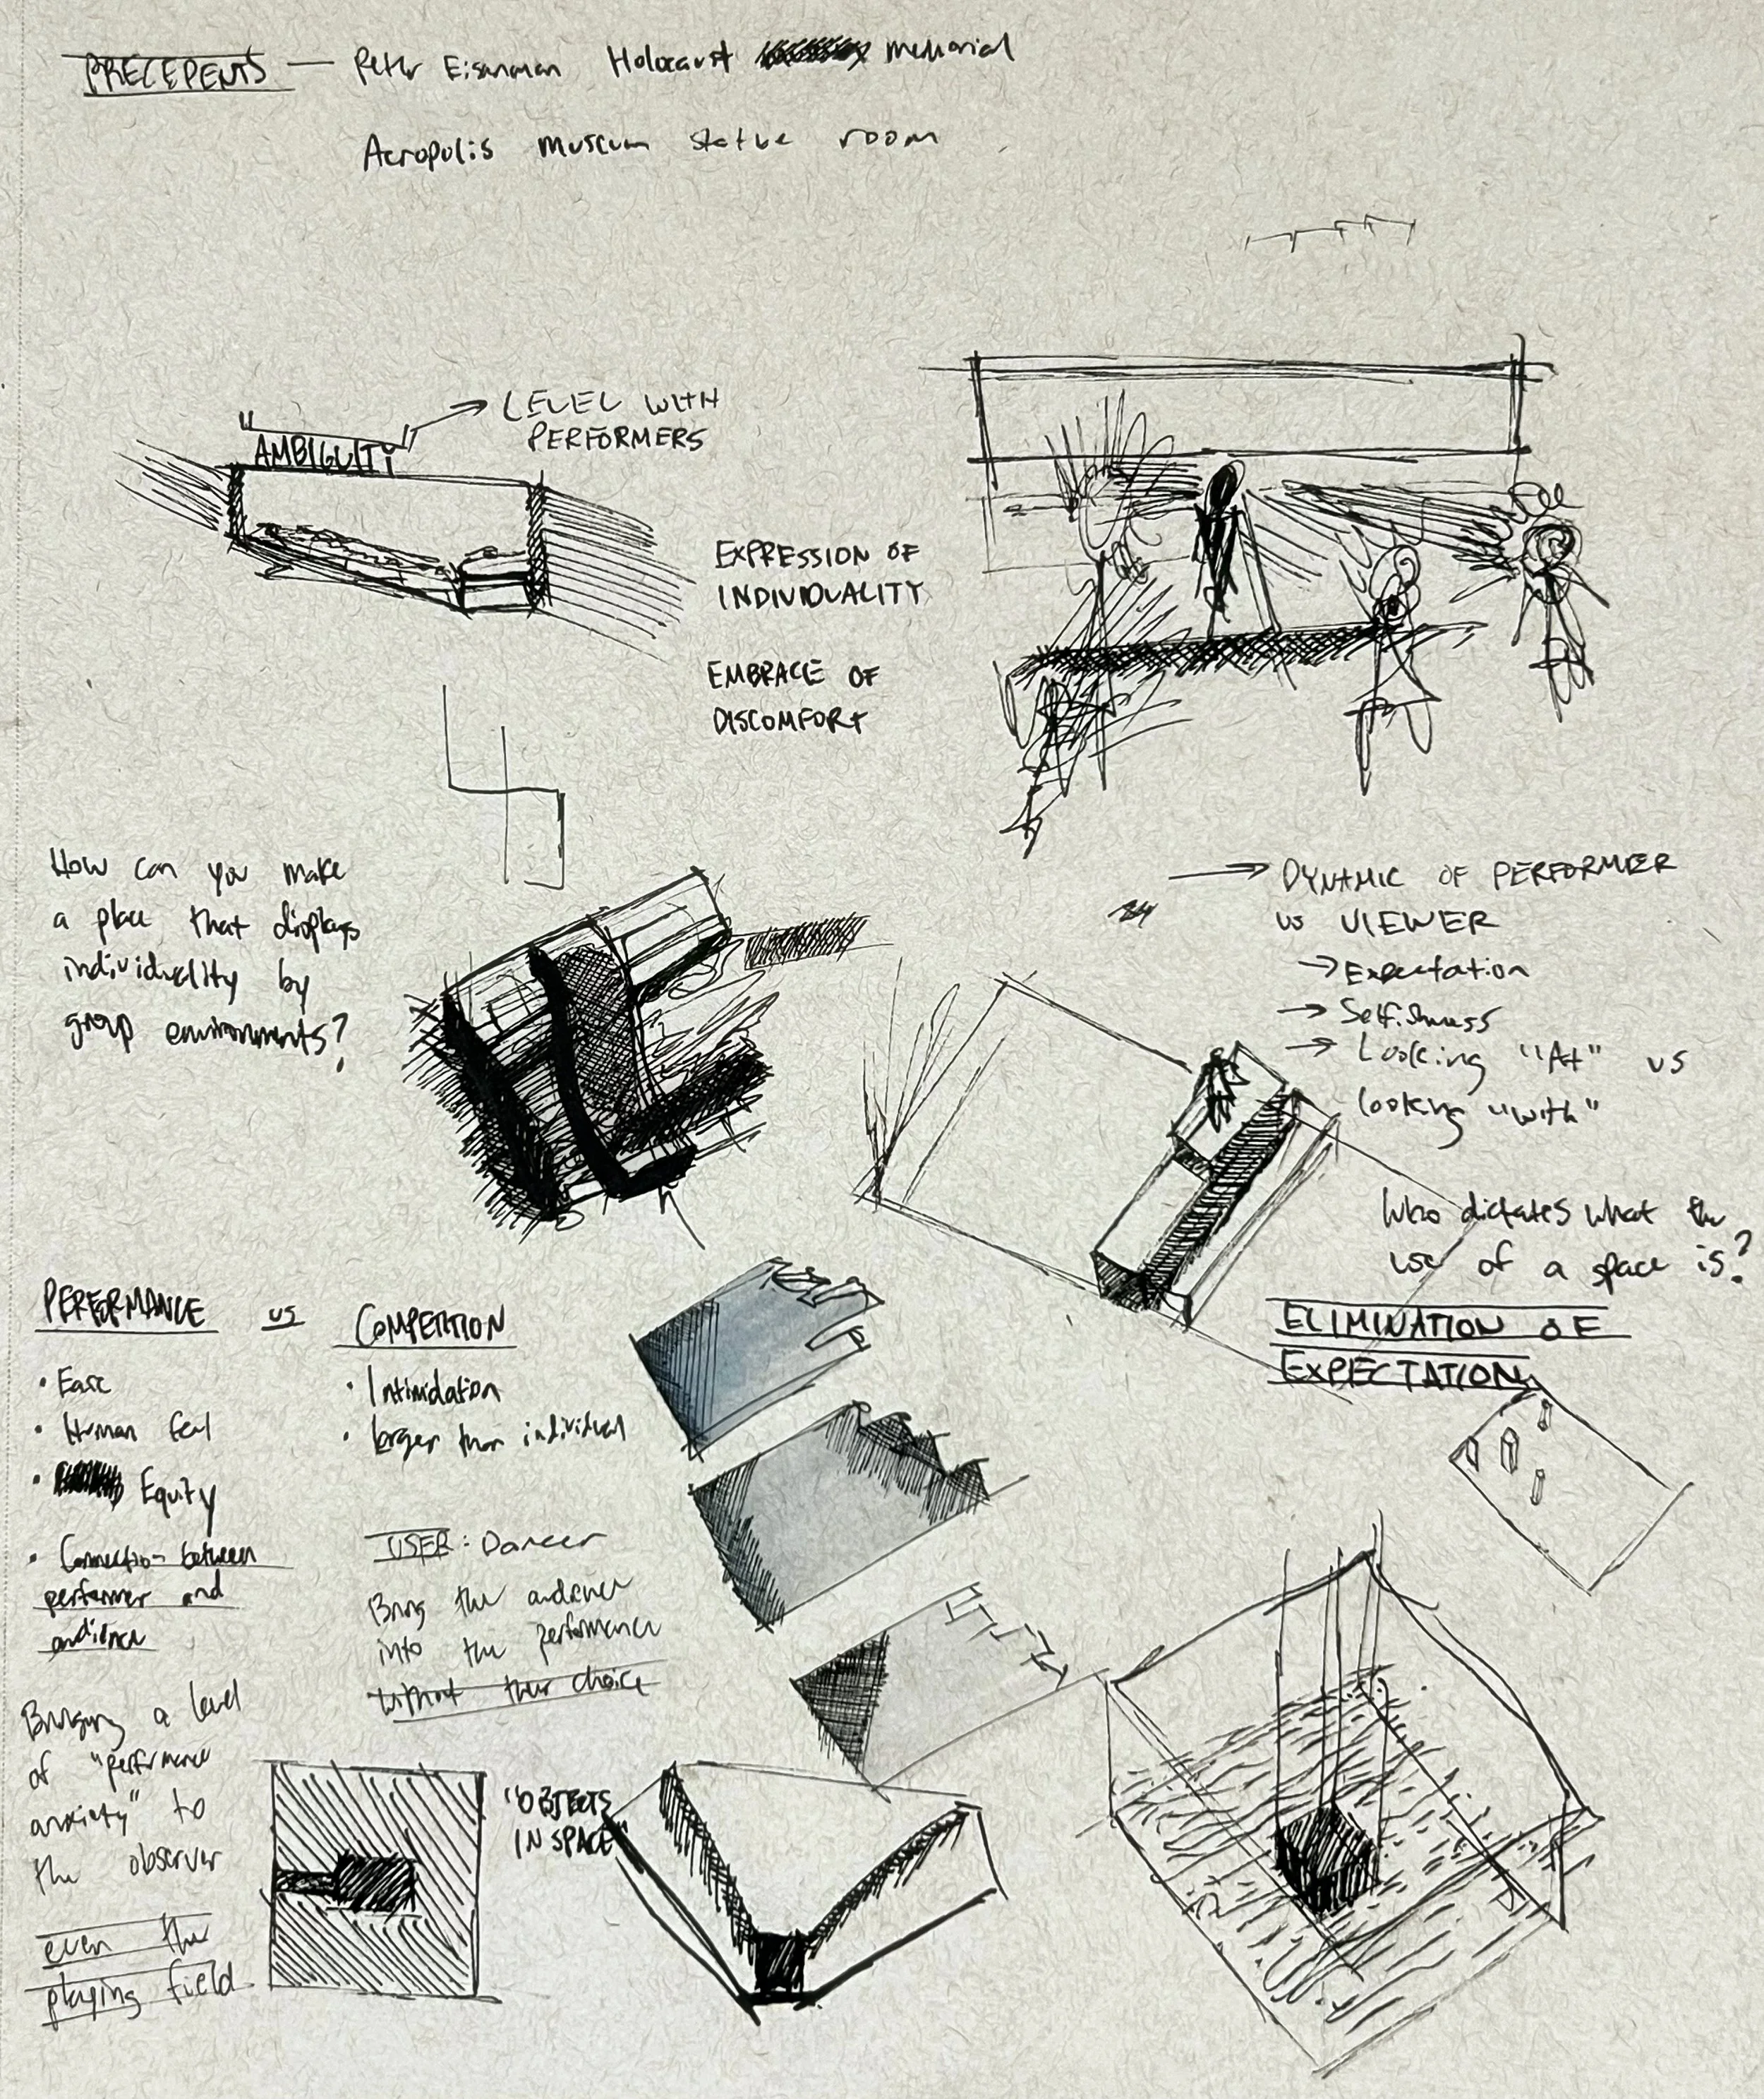 PRECEPENTS — Peter Eisenman Holocaust memorial
Acropolis museum statue room
LEVEL WITH
PERFORMERS
AMBIGUITY
EXPRESSION OF
INDIVIDUALITY
EMBRACE OF
DISCOMFORT
How can you make
a place that displays
individuality by
group environments?
→ DYNAMIC OF PERFORMER
vs VIEWER
→ Expectation
→ Selfishness
→ Looking "At" vs
looking "with"
Who dictates what the
use of a space is?
ELIMINATION OF
EXPECTATION
PERFORMANCE vs COMPETITION
• Ease
• Human feel
• Equity
• Connection between
performer and
audience
• Intimidation
• larger than individual
USER: Dancer
Bring the audience
into the performance
without their choice
Bringing a level
of "performance
anxiety" to
the observer
even the
playing field
"OBJECTS
IN SPACE"